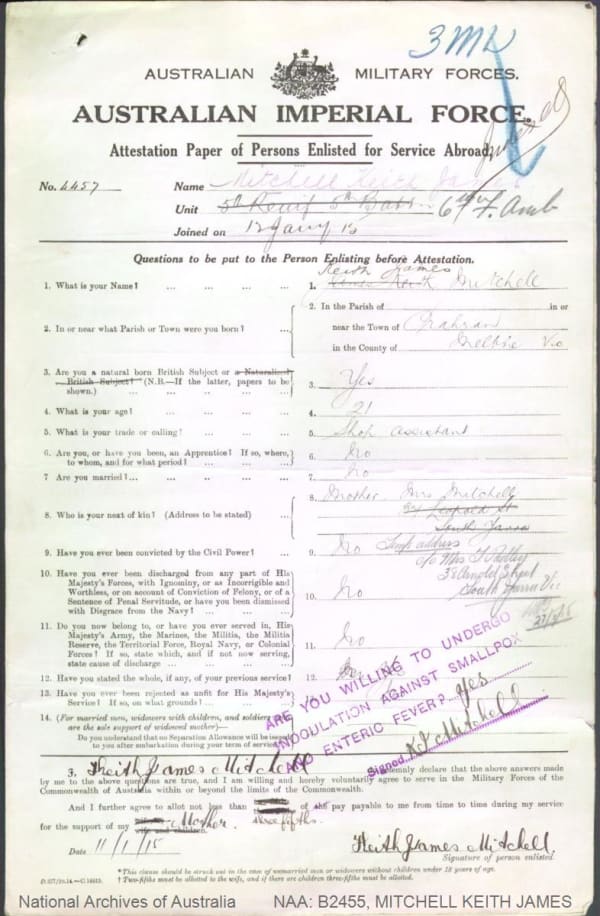 3 ML
AUSTRALIAN MILITARY FORCES.
AUSTRALIAN IMPERIAL FORCE.
Attestation Paper of Persons Enlisted for Service Abroad.
No. 4457 Name Mitchell Keith James
Unit 5th Reinf 5th Battn 6th F. Amb
Joined on 12 Jany 15
Questions to be put to the Person Enlisting before Attestation.
1. What is your Name? ... ... ... 1. Keith James Mitchell
2. In or near what Parish or Town were you born? ... 2. In the Parish of in or
near the Town of Prahran
in the County of Melbne Vic
3. Are you a natural born British Subject or a Naturalized
British Subject? (N.B.—If the latter, papers to be
shown.) ... ... ... ... 3. Yes
4. What is your age? ... ... ... 4. 21
5. What is your trade or calling? ... ... ... 5. Shop assistant
6. Are you, or have you been, an Apprentice? If so, where,
to whom, and for what period? ... ... 6. No
7. Are you married?... ... ... ... 7. No
8. Who is your next of kin? (Address to be stated) ... 8. Mother Mrs Mitchell
Leopold St
South Yarra
Temp address
c/o Mrs
38 Arnold Street
South Yarra Vic
9. Have you ever been convicted by the Civil Power? ... 9. No
10. Have you ever been discharged from any part of His
Majesty's Forces, with Ignominy, or as Incorrigible and
Worthless, or on account of Conviction of Felony, or of a
Sentence of Penal Servitude, or have you been dismissed
with Disgrace from the Navy? ... ... 10. No
11. Do you now belong to, or have you ever served in, His
Majesty's Army, the Marines, the Militia, the Militia
Reserve, the Territorial Force, Royal Navy, or Colonial
Forces? If so, state which, and if not now serving,
state cause of discharge ... ... 11. No
12. Have you stated the whole, if any, of your previous service? 12.
13. Have you ever been rejected as unfit for His Majesty's
Service? If so, on what grounds? ... ...
14. (For married men, widowers with children, and soldiers who
are the sole support of widowed mother)—
Do you understand that no Separation Allowance will be issued
to you after embarkation during your term of service?
ARE YOU WILLING TO UNDERGO
INOCULATION AGAINST SMALLPOX
AND ENTERIC FEVER? Yes
Signed K J Mitchell
I, Keith James Mitchell solemnly declare that the above answers made
by me to the above questions are true, and I am willing and hereby voluntarily agree to serve in the Military Forces of the
Commonwealth of Australia within or beyond the limits of the Commonwealth.
And I further agree to allot not less than three fifths of the pay payable to me from time to time during my service
for the support of my Mother
wife and children.
Date 11/1/15 Keith James Mitchell
Signature of person enlisted.
*This clause should be struck out in the case of unmarried men or widowers without children under 18 years of age.
† Two-fifths must be allotted to the wife, and if there are children three-fifths must be allotted.
National Archives of Australia NAA: B2455, MITCHELL KEITH JAMES